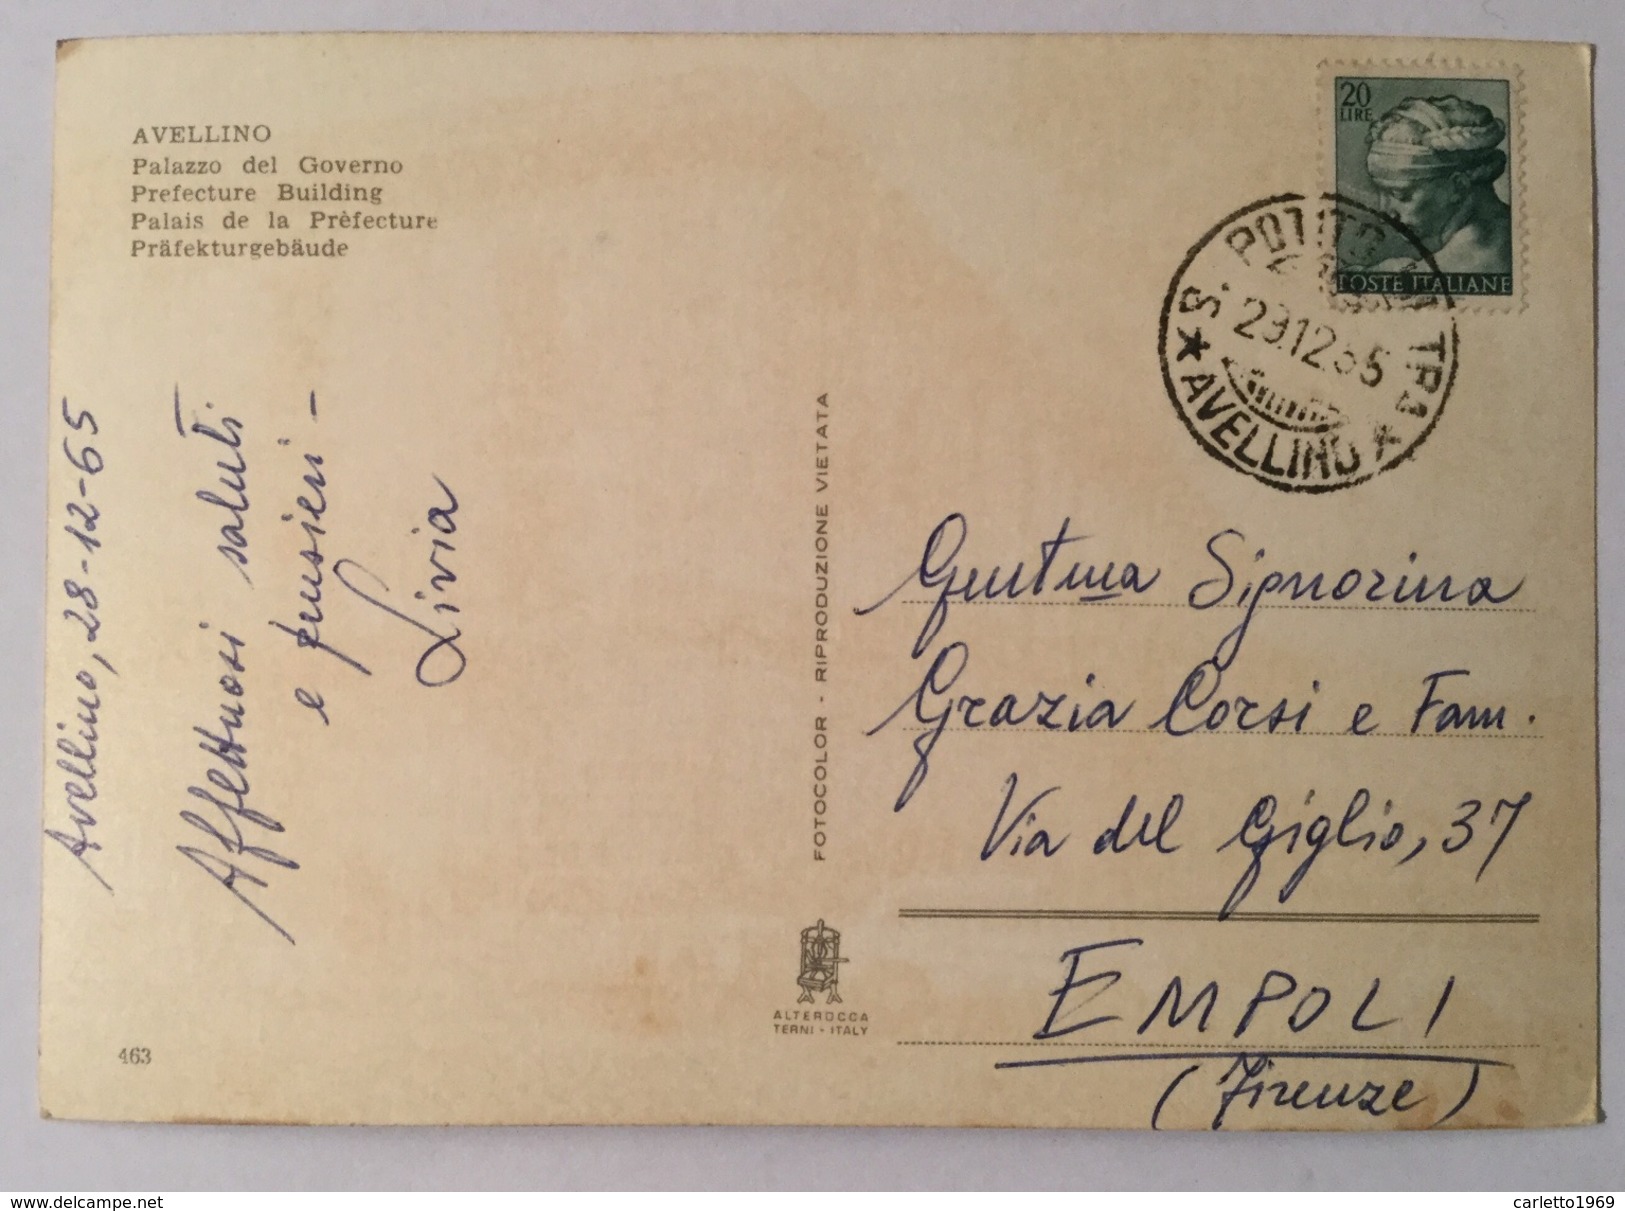 AVELLINO
Palazzo del Governo
Prefecture Building
Palais de la Prèfecture
Präfekturgebäude
Avellino, 28-12-65
Affettuosi saluti
e pensieri -
Livia
FOTOCOLOR - RIPRODUZIONE VIETATA
ALTEROCCA
TERNI - ITALY
463
20
LIRE
POSTE ITALIANE
S. POTITO ULTRA
29.12.65
★ AVELLINO ★
Gent.ma Signorina
Grazia Corsi e Fam.
Via del Giglio, 37
EMPOLI
(Firenze)
www.delcampe.net
carletto1969